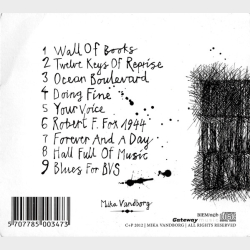 1 Wall Of Books
2 Twelve Keys Of Reprise
3 Ocean Boulevard
4 Doing Fine
5 Your Voice
6 Robert F. Fox 1944
7 Forever And A Day
8 Hall Full Of Music
9 Blues For BVS
Mika Vandborg
5 707785 003473
Gateway
C+P 2012 | MIKA VANDBORG | ALL RIGHTS RESERVED